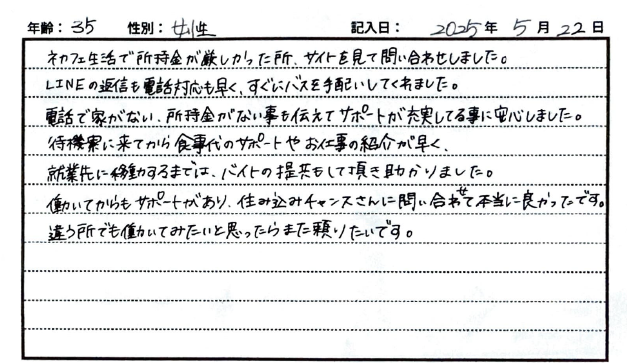 年齢：35　性別：女性　記入日：2025年5月22日
ネカフェ生活で所持金が厳しかった所、サイトを見て問い合わせしました。
LINEの返信も電話対応も早く、すぐにバスを手配いしてくれました。
電話で家がない、所持金がない事も伝えてサポートが充実してる事に安心しました。
待機寮に来てから食事代のサポートやお仕事の紹介が早く、
就業先に移動するまでは、バイトの提供もして頂き助かりました。
働いてからもサポートがあり、住み込みチャンスさんに問い合わせて本当に良かったです。
違う所でも働いてみたいと思ったらまた頼りたいです。